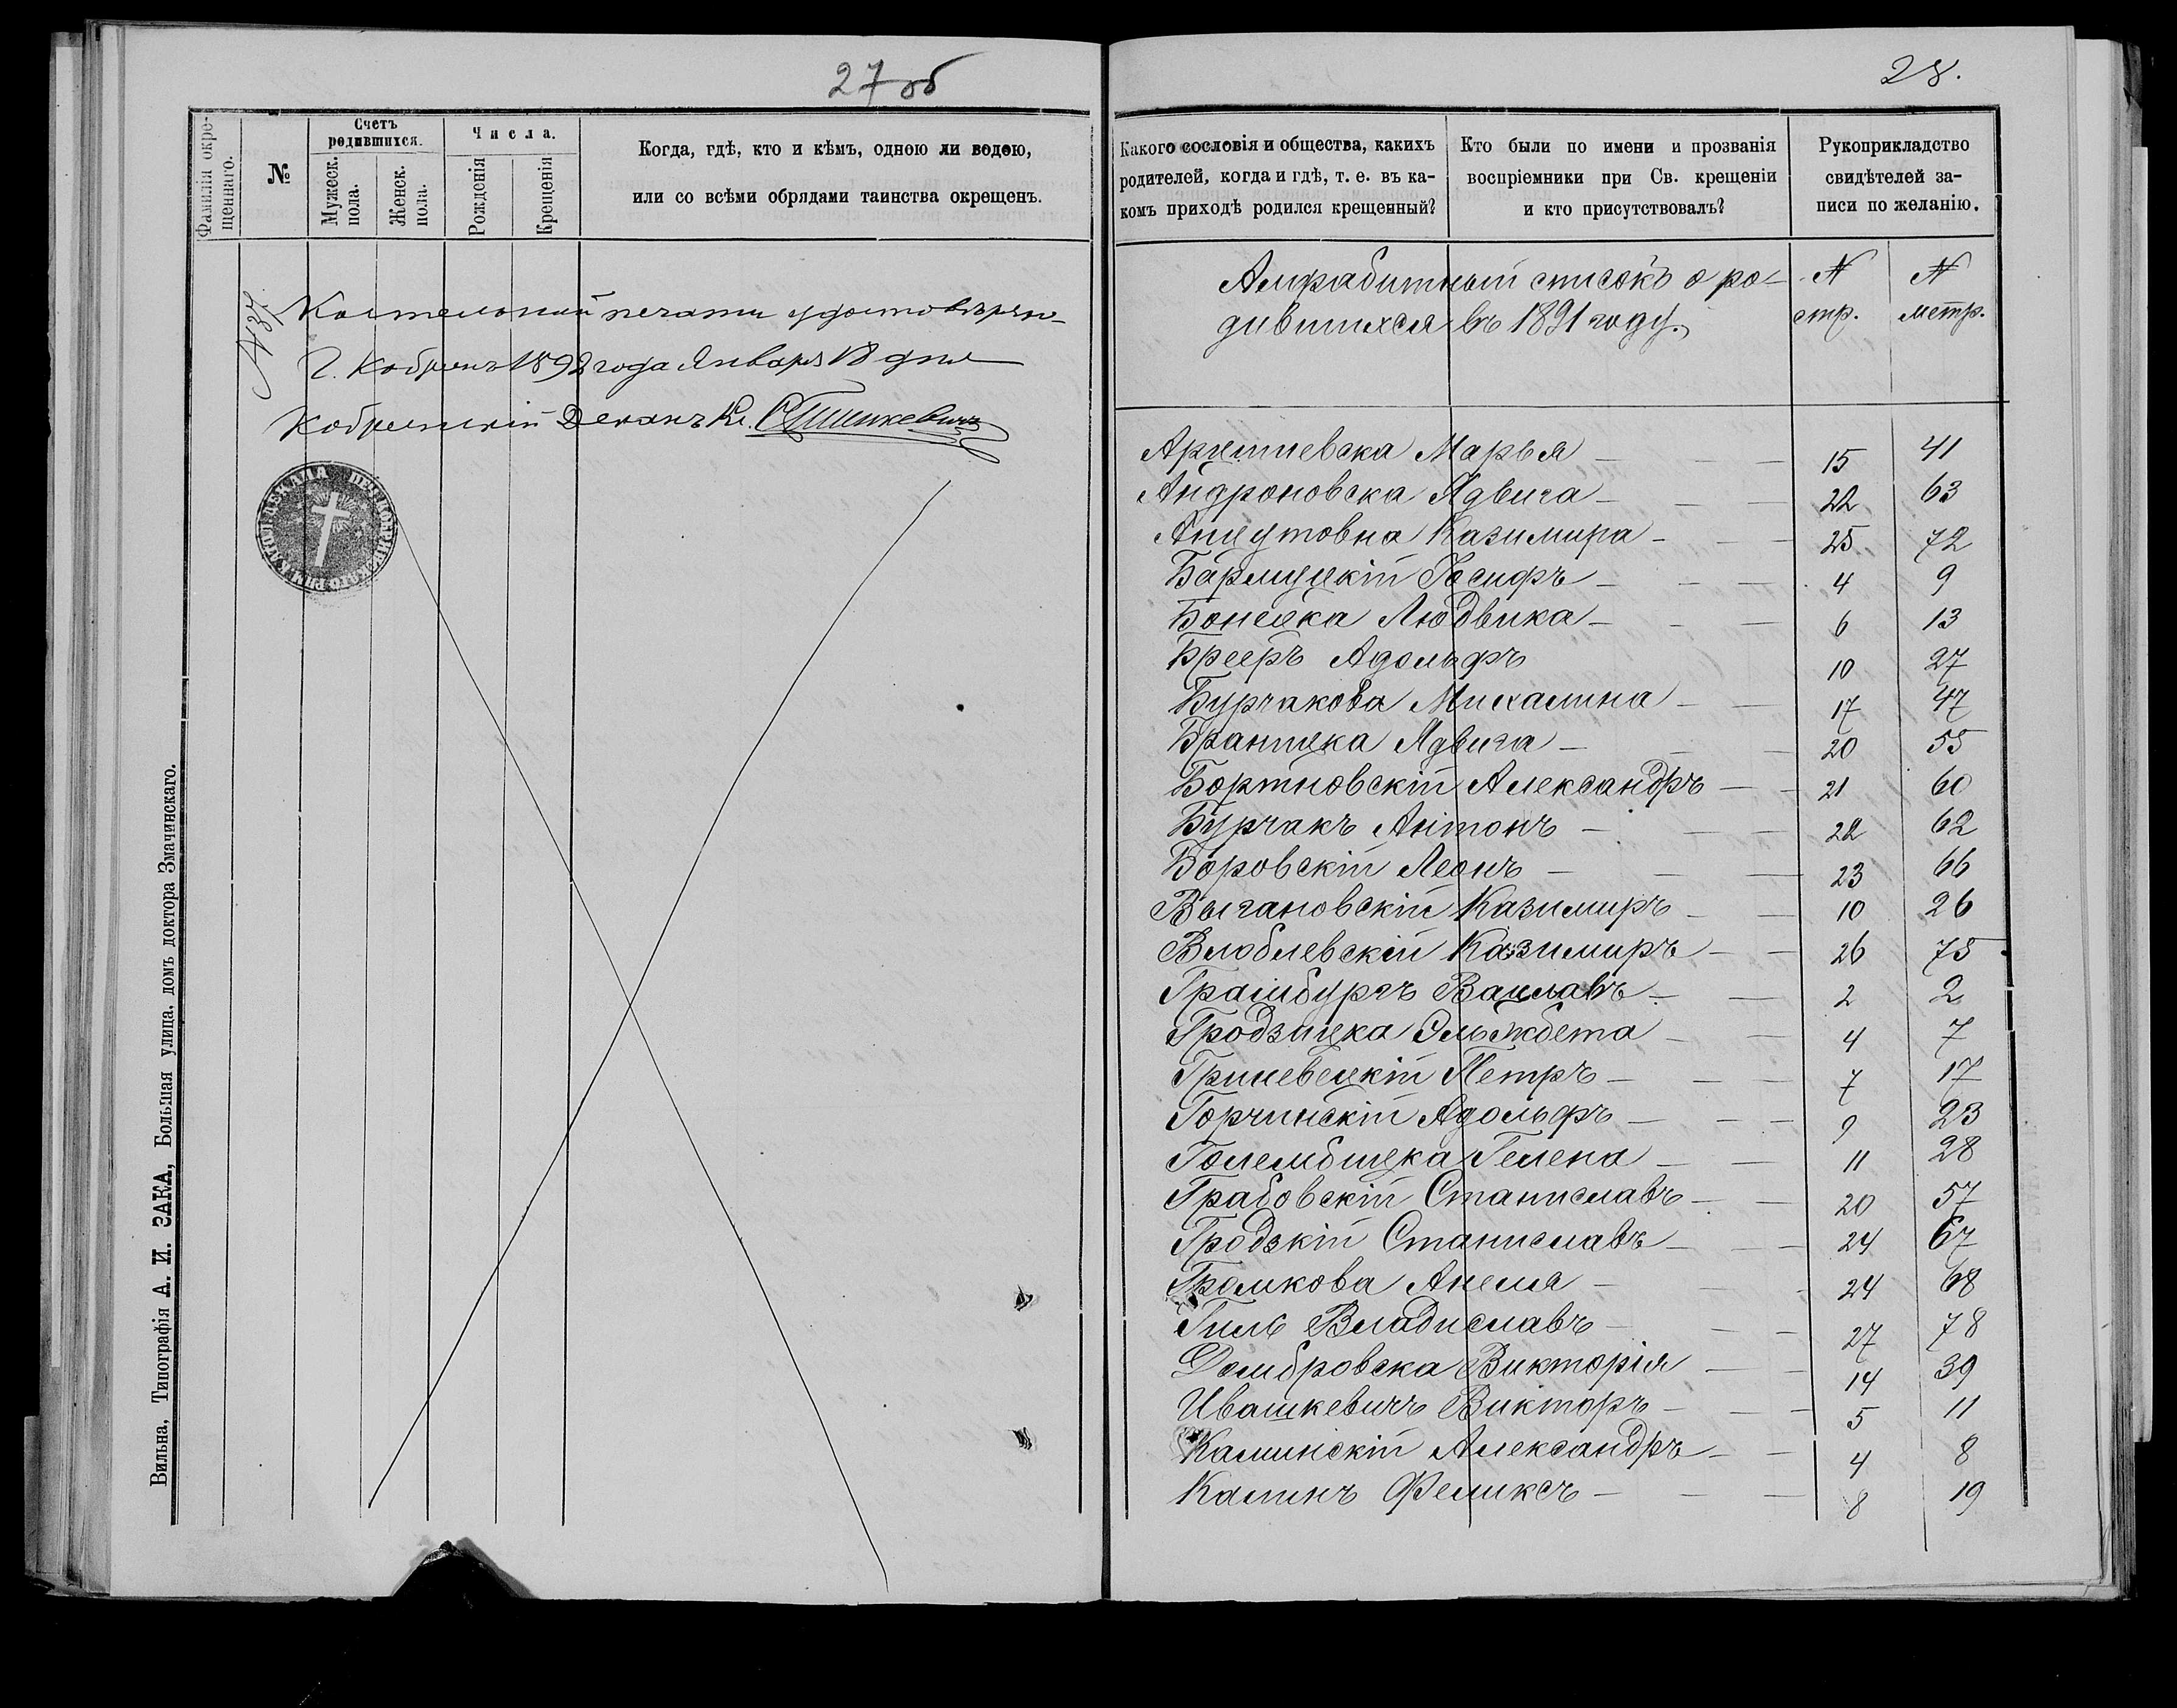 27 об
Фамилія окре-
щеннаго.
№
Счетъ
родившихся.
Мужеск.
пола.
Женск.
пола.
Числа.
Рожденія
Крещенія
Когда, гдѣ, кто и кѣмъ, одною ли водою,
или со всѣми обрядами таинства окрещенъ.
печати
Г. Кобринъ 1892 года Января 18 дня
Кобринскій Деканъ Кс.
Вильна, Типографія А. И. ЗАКА, Большая улица, домъ доктора Змачинскаго.
28.
Какого сословія и общества, какихъ
родителей, когда и гдѣ, т. е. въ ка-
комъ приходѣ родился крещенный?
Кто были по имени и прозванія
воспріемники при Св. крещеніи
и кто присутствовалъ?
Рукоприкладство
свидѣтелей за-
писи по желанію.
Алфабитный списокъ о ро-
дившихся въ 1891 году.
N стр. N метр.
Марья 15 41
Андроновска Ядвига 22 63
Казимира 25 72
Іосифъ 4 9
Бонецка Людвика 6 13
Брееръ Адольфъ 10 27
Бурчакова Михалина 17 47
Ядвига 20 55
Бортновскій Александръ 21 60
Бурчакъ Антонъ 22 62
Боровскій Леонъ 23 66
Выгановскій Казимиръ 10 26
Влоблевскій Казимиръ 26 75
Вацлавъ 2 2
Гродзицка Эльжбета 4 7
Гриневецкій Петръ 7 17
Горчинскій Адольфъ 9 23
Голембицка Гелена 11 28
Грабовскій Станиславъ 20 57
Гродзкій Станиславъ 24 67
Громкова Анеля 24 68
Гиль Владиславъ 27 78
Домбровска Викторія 14 39
Ивашкевичъ Викторъ 5 11
Каминскій Александръ 4 8
Калинъ Феликсъ 8 19